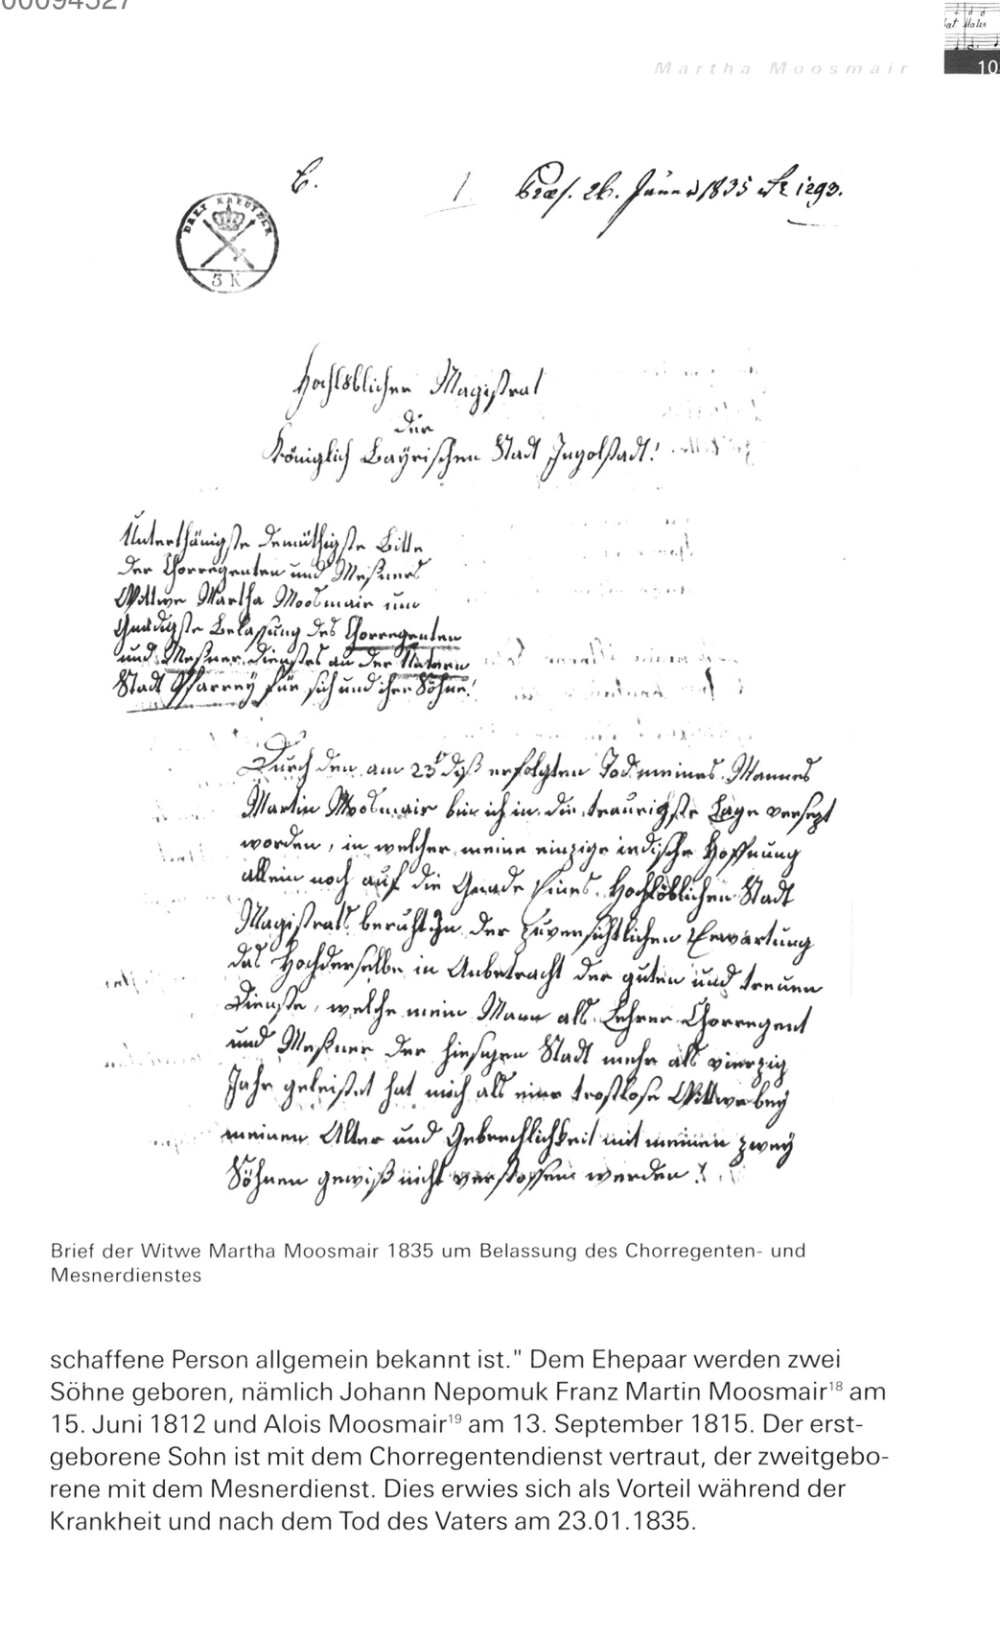 00094527
Martha Moosmair
10
C.
1
Präs. 26. Jänner 1835 No 1293.
DREI KREUTZER
3 K
Hochlöblicher Magistrat
der
Königlich Bayrischen Stadt Ingolstadt!
Unterthänigste demüthigste Bitte
der Chorregenten und Meßners
Wittwe Martha Moosmair um
Gnädigste Belassung des Chorregenten
und Meßner dienstes an der Untern
Stadt Pfarrey für sich und ihre Söhne!
Durch den am 23t dieß erfolgten Tod meines Mannes
Martin Moosmair bin ich in die traurigste Lage versezt
worden, in welcher meine einzige irdische Hoffnung
allein noch auf die Gnade Eines Hochlöblichen Stadt
Magistrats beruht. In der zuversichtlichen Erwartung
das Hochderselbe in Anbetracht der guten und treuen
Dienste, welche mein Mann als Lehrer Chorregent
und Meßner der hiesigen Stadt mehr als vierzig
Jahr geleistet hat mich als eine trostlose Wittwe bey
meinem Alter und Gebrechlichkeit mit meinen zwey
Söhnen gewiß nicht verstossen werden!
Brief der Witwe Martha Moosmair 1835 um Belassung des Chorregenten- und
Mesnerdienstes
schaffene Person allgemein bekannt ist." Dem Ehepaar werden zwei
Söhne geboren, nämlich Johann Nepomuk Franz Martin Moosmair18 am
15. Juni 1812 und Alois Moosmair19 am 13. September 1815. Der erst-
geborene Sohn ist mit dem Chorregentendienst vertraut, der zweitgebo-
rene mit dem Mesnerdienst. Dies erwies sich als Vorteil während der
Krankheit und nach dem Tod des Vaters am 23.01.1835.